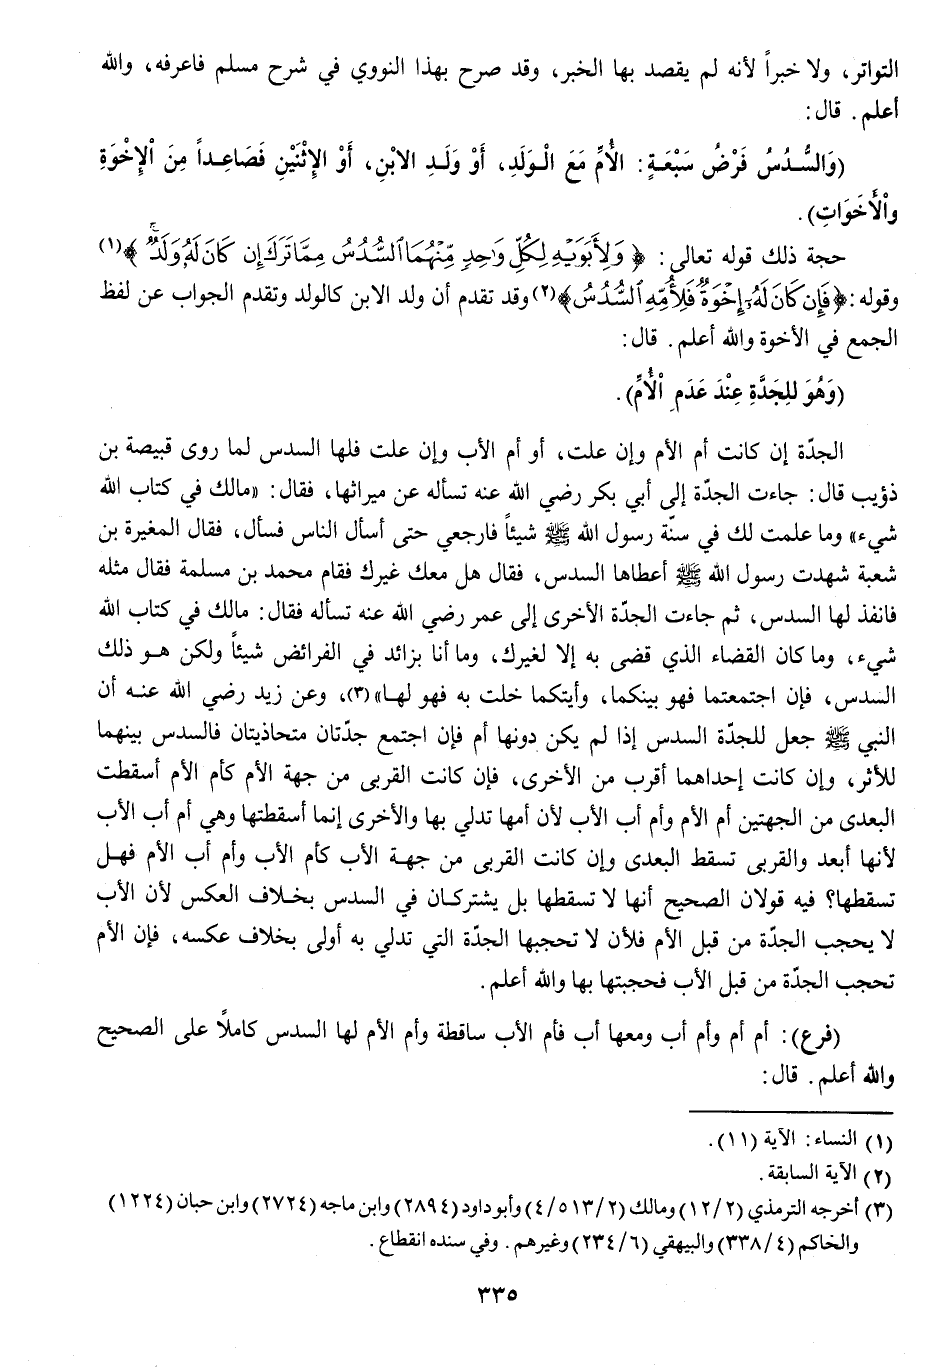 التواتر، ولا خبراً لأنه لم يقصد بها الخبر، وقد صرح بهذا النووي في شرح مسلم فاعرفه، والله
أعلم. قال:
(وَالسُّدُسُ فَرْضُ سَبْعَةٍ: الأُمِّ مَعَ الْوَلَدِ، أَوْ وَلَدِ الابْنِ، أَوْ الإِثْنَيْنِ فَصَاعِداً مِنَ الْإِخْوَةِ
والْأَخَوَاتِ).
حجة ذلك قوله تعالى: ﴿وَلِأَبَوَيْهِ لِكُلِّ وَاحِدٍ مِّنْهُمَا ٱلسُّدُسُ مِمَّا تَرَكَ إِن كَانَ لَهُۥ وَلَدٌۚ﴾(١)
وقوله: ﴿فَإِن كَانَ لَهُۥٓ إِخْوَةٌ فَلِأُمِّهِ ٱلسُّدُسُ﴾(٢) وقد تقدم أن ولد الابن كالولد وتقدم الجواب عن لفظ
الجمع في الأخوة والله أعلم. قال:
(وَهُوَ للِجَدَّةِ عِنْدَ عَدَمِ الْأُمِّ).
الجدّة إن كانت أم الأم وإن علت، أو أم الأب وإن علت فلها السدس لما روى قبيصة بن
ذؤيب قال: جاءت الجدّة إلى أبي بكر رضي الله عنه تسأله عن ميراثها، فقال: «مالك في كتاب الله
شيء» وما علمت لك في سنّة رسول الله ﷺ شيئاً فارجعي حتى أسأل الناس فسأل، فقال المغيرة بن
شعبة شهدت رسول الله ﷺ أعطاها السدس، فقال هل معك غيرك فقام محمد بن مسلمة فقال مثله
فانفذ لها السدس، ثم جاءت الجدّة الأخرى إلى عمر رضي الله عنه تسأله فقال: مالك في كتاب الله
شيء، وما كان القضاء الذي قضى به إلا لغيرك، وما أنا بزائد في الفرائض شيئاً ولكن هو ذلك
السدس، فإن اجتمعتما فهو بينكما، وأيتكما خلت به فهو لها»(٣)، وعن زيد رضي الله عنه أن
النبي ﷺ جعل للجدّة السدس إذا لم يكن دونها أم فإن اجتمع جدّتان متحاذيتان فالسدس بينهما
للأثر، وإن كانت إحداهما أقرب من الأخرى، فإن كانت القربى من جهة الأم كأم الأم أسقطت
البعدى من الجهتين أم الأم وأم أب الأب لأن أمها تدلي بها والأخرى إنما أسقطتها وهي أم أب الأب
لأنها أبعد والقربى تسقط البعدى وإن كانت القربى من جهة الأب كأم الأب وأم أب الأم فهل
تسقطها؟ فيه قولان الصحيح أنها لا تسقطها بل يشتركان في السدس بخلاف العكس لأن الأب
لا يحجب الجدّة من قبل الأم فلأن لا تحجبها الجدّة التي تدلي به أولى بخلاف عكسه، فإن الأم
تحجب الجدّة من قبل الأب فحجبتها بها والله أعلم.
(فرع): أم أم وأم أب ومعها أب فأم الأب ساقطة وأم الأم لها السدس كاملاً على الصحيح
والله أعلم. قال:
(١) النساء: الآية (١١).
(٢) الآية السابقة.
(٣) أخرجه الترمذي (١٢/٢) ومالك (٤/٥١٣/٢) وأبو داود (٢٨٩٤) وابن ماجه (٢٧٢٤) وابن حبان (١٢٢٤)
والحاكم (٣٣٨/٤) والبيهقي (٢٣٤/٦) وغيرهم. وفي سنده انقطاع.
٣٣٥